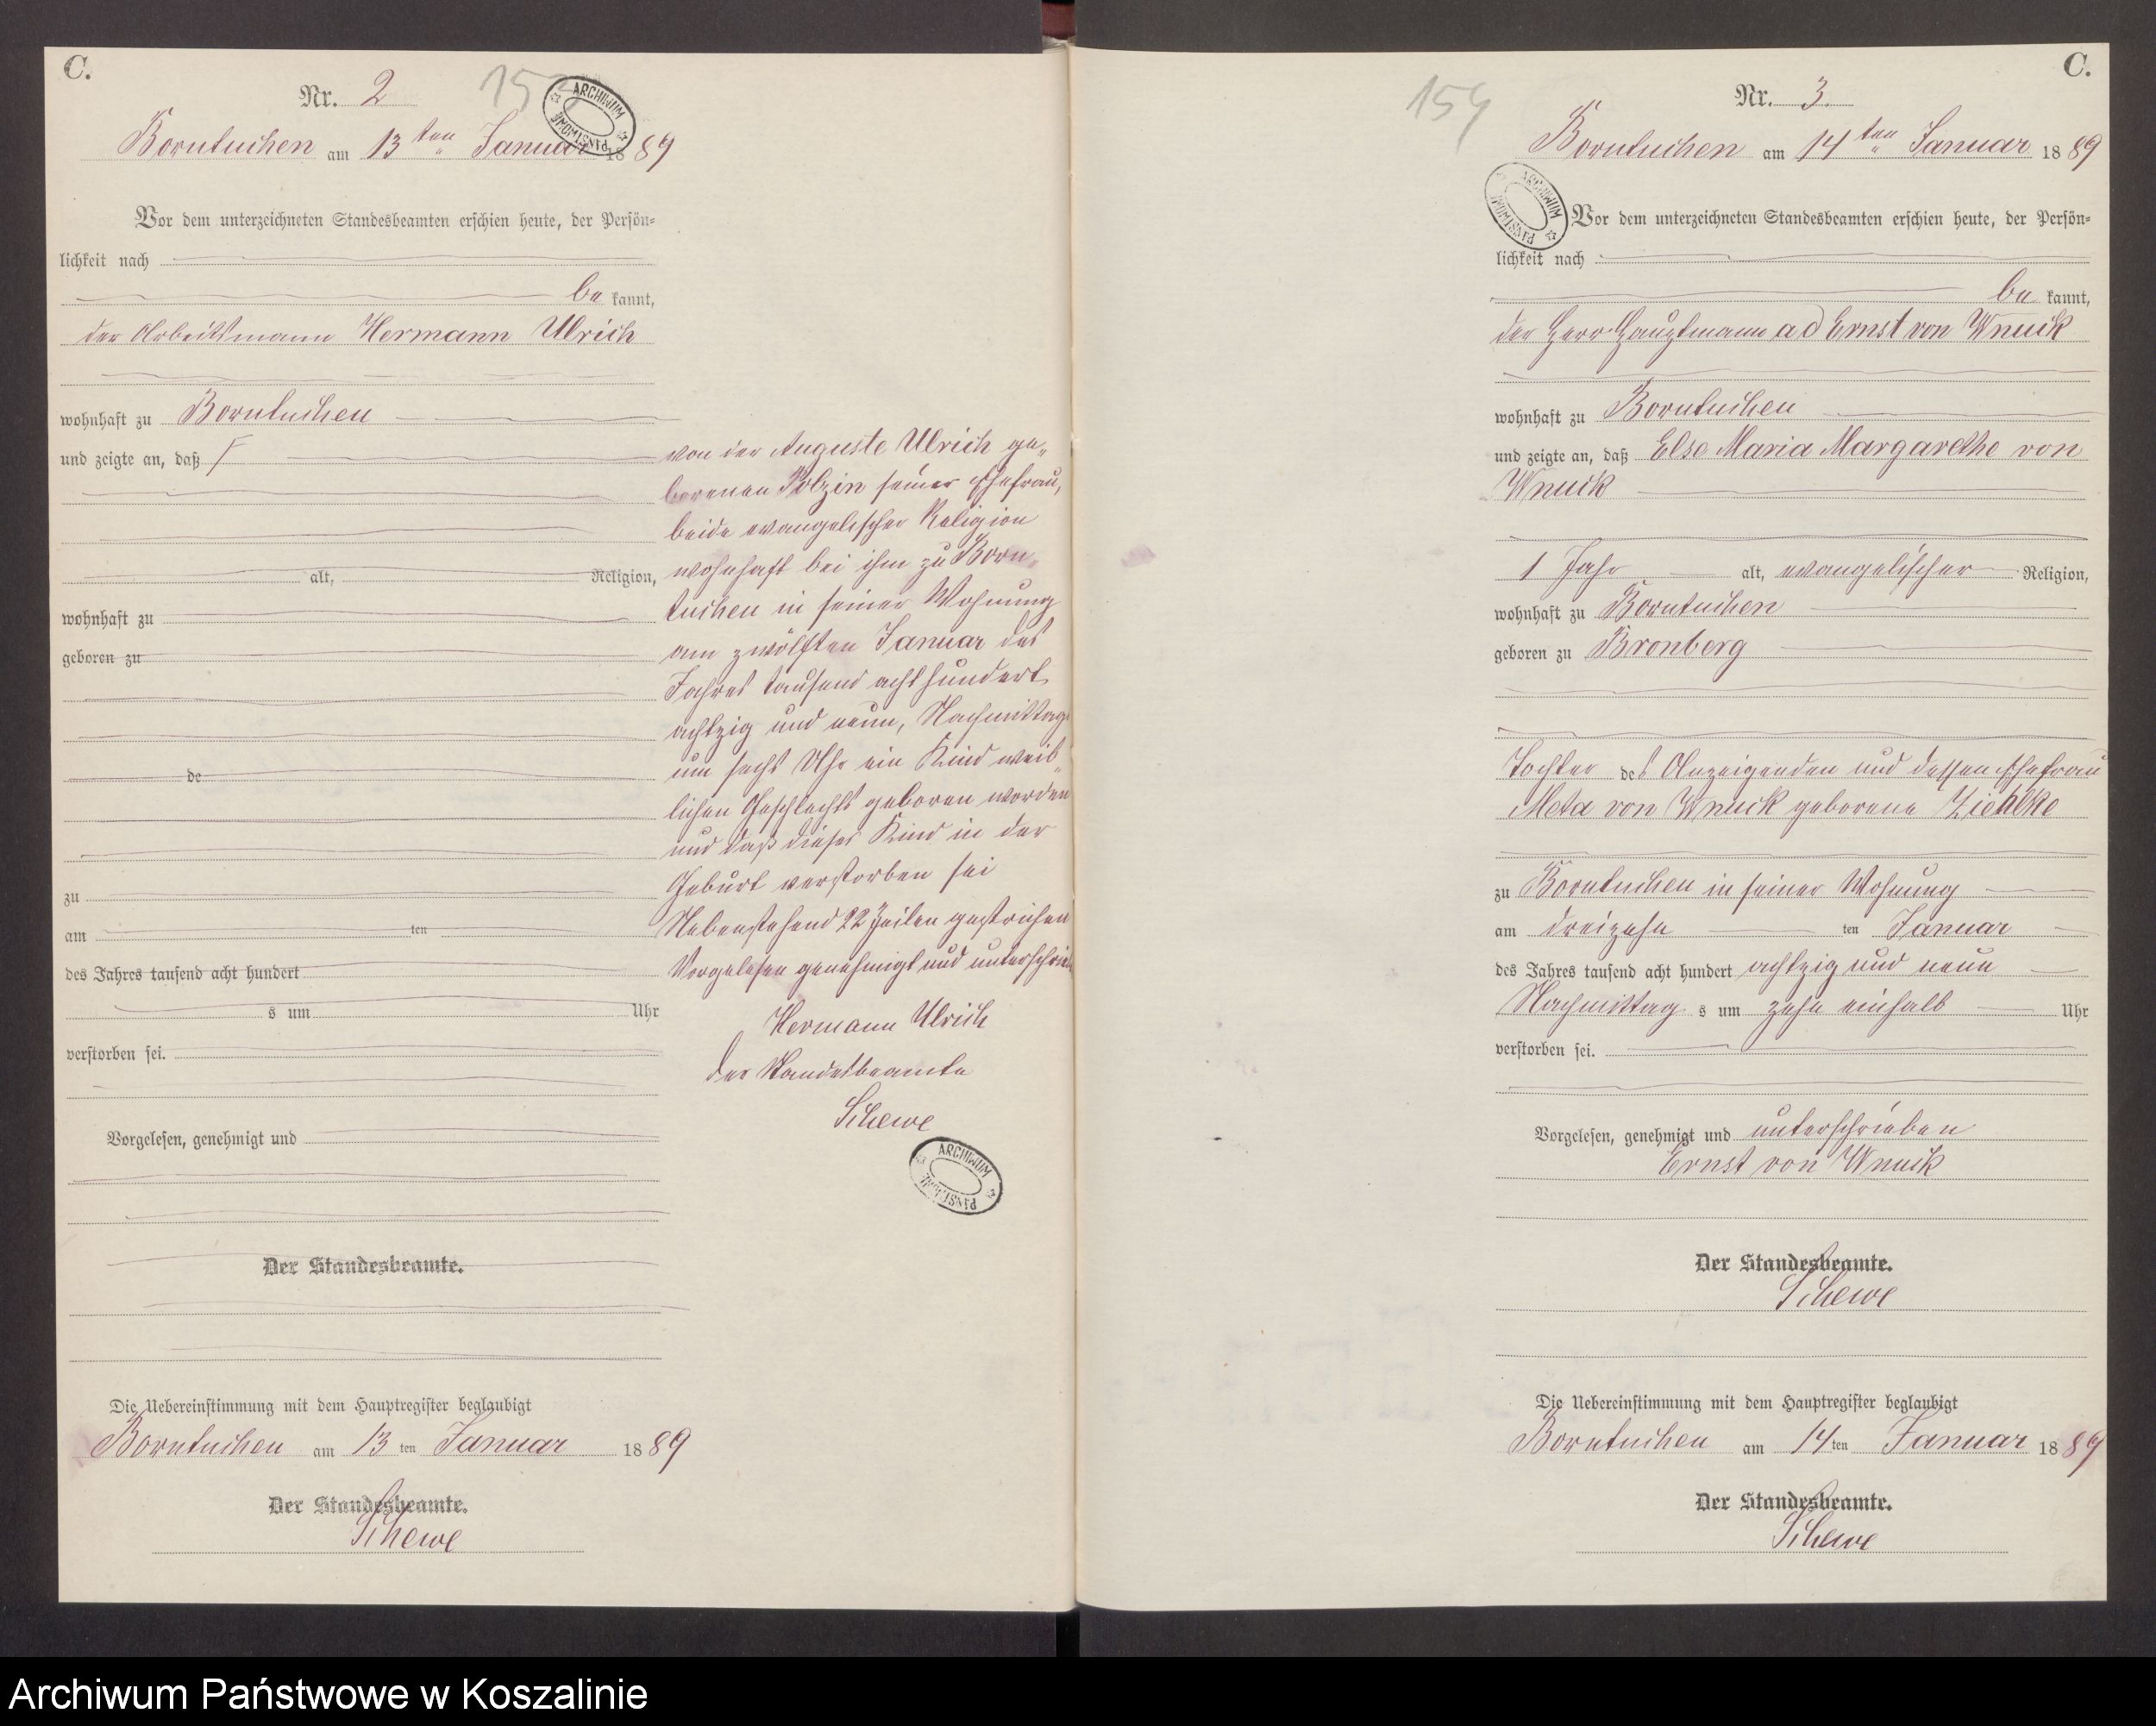 C.
Nr. 2
15
ARCHIWUM PAŃSTWOWE
Borntuchen am 13ten Januar 1889
Vor dem unterzeichneten Standesbeamten erschien heute, der Persön-
lichkeit nach
be kannt,
der Arbeitsmann Hermann Ulrich
wohnhaft zu Borntuchen
und zeigte an, daß
alt, Religion,
wohnhaft zu
geboren zu
de
zu
am ten
des Jahres tausend acht hundert
s um Uhr
verstorben sei.
Vorgelesen, genehmigt und
Der Standesbeamte.
von der Auguste Ulrich ge-
borenen Polzin seiner Ehefrau,
beide evangelischer Religion
wohnhaft bei ihm zu Born-
tuchen in seiner Wohnung
am zwölften Januar des
Jahres tausend achthundert
achtzig und neun, Nachmittags
um sechs Uhr ein Kind weib-
lichen Geschlechts geboren worden
und daß dieses Kind in der
Geburt verstorben sei
Nebenstehend 22 Zeilen gestrichen
Vorgelesen genehmigt und unterschrieb
Hermann Ulrich
Der Standesbeamte
Schewe
ARCHIWUM PAŃSTWOWE
Die Uebereinstimmung mit dem Hauptregister beglaubigt
Borntuchen am 13ten Januar 1889
Der Standesbeamte.
Schewe
C.
154
Nr. 3.
Borntuchen am 14ten Januar 1889
ARCHIWUM PAŃSTWOWE
Vor dem unterzeichneten Standesbeamten erschien heute, der Persön-
lichkeit nach
be kannt,
der Herr Hauptmann a d Ernst von Wnuck
wohnhaft zu Borntuchen
und zeigte an, daß Else Maria Margarethe von
Wnuck
1 Jahr alt, evangelischer Religion,
wohnhaft zu Borntuchen
geboren zu Bronberg
Tochter des Anzeigenden und dessen Ehefrau
Meta von Wnuck geborene Ziehlke
zu Borntuchen in seiner Wohnung
am dreizehn ten Januar
des Jahres tausend acht hundert achtzig und neun
Nachmittag s um zehn einhalb Uhr
verstorben sei.
Vorgelesen, genehmigt und unterschrieben
Ernst von Wnuck
Der Standesbeamte.
Schewe
Die Uebereinstimmung mit dem Hauptregister beglaubigt
Borntuchen am 14ten Januar 1889
Der Standesbeamte.
Schewe
Archiwum Państwowe w Koszalinie